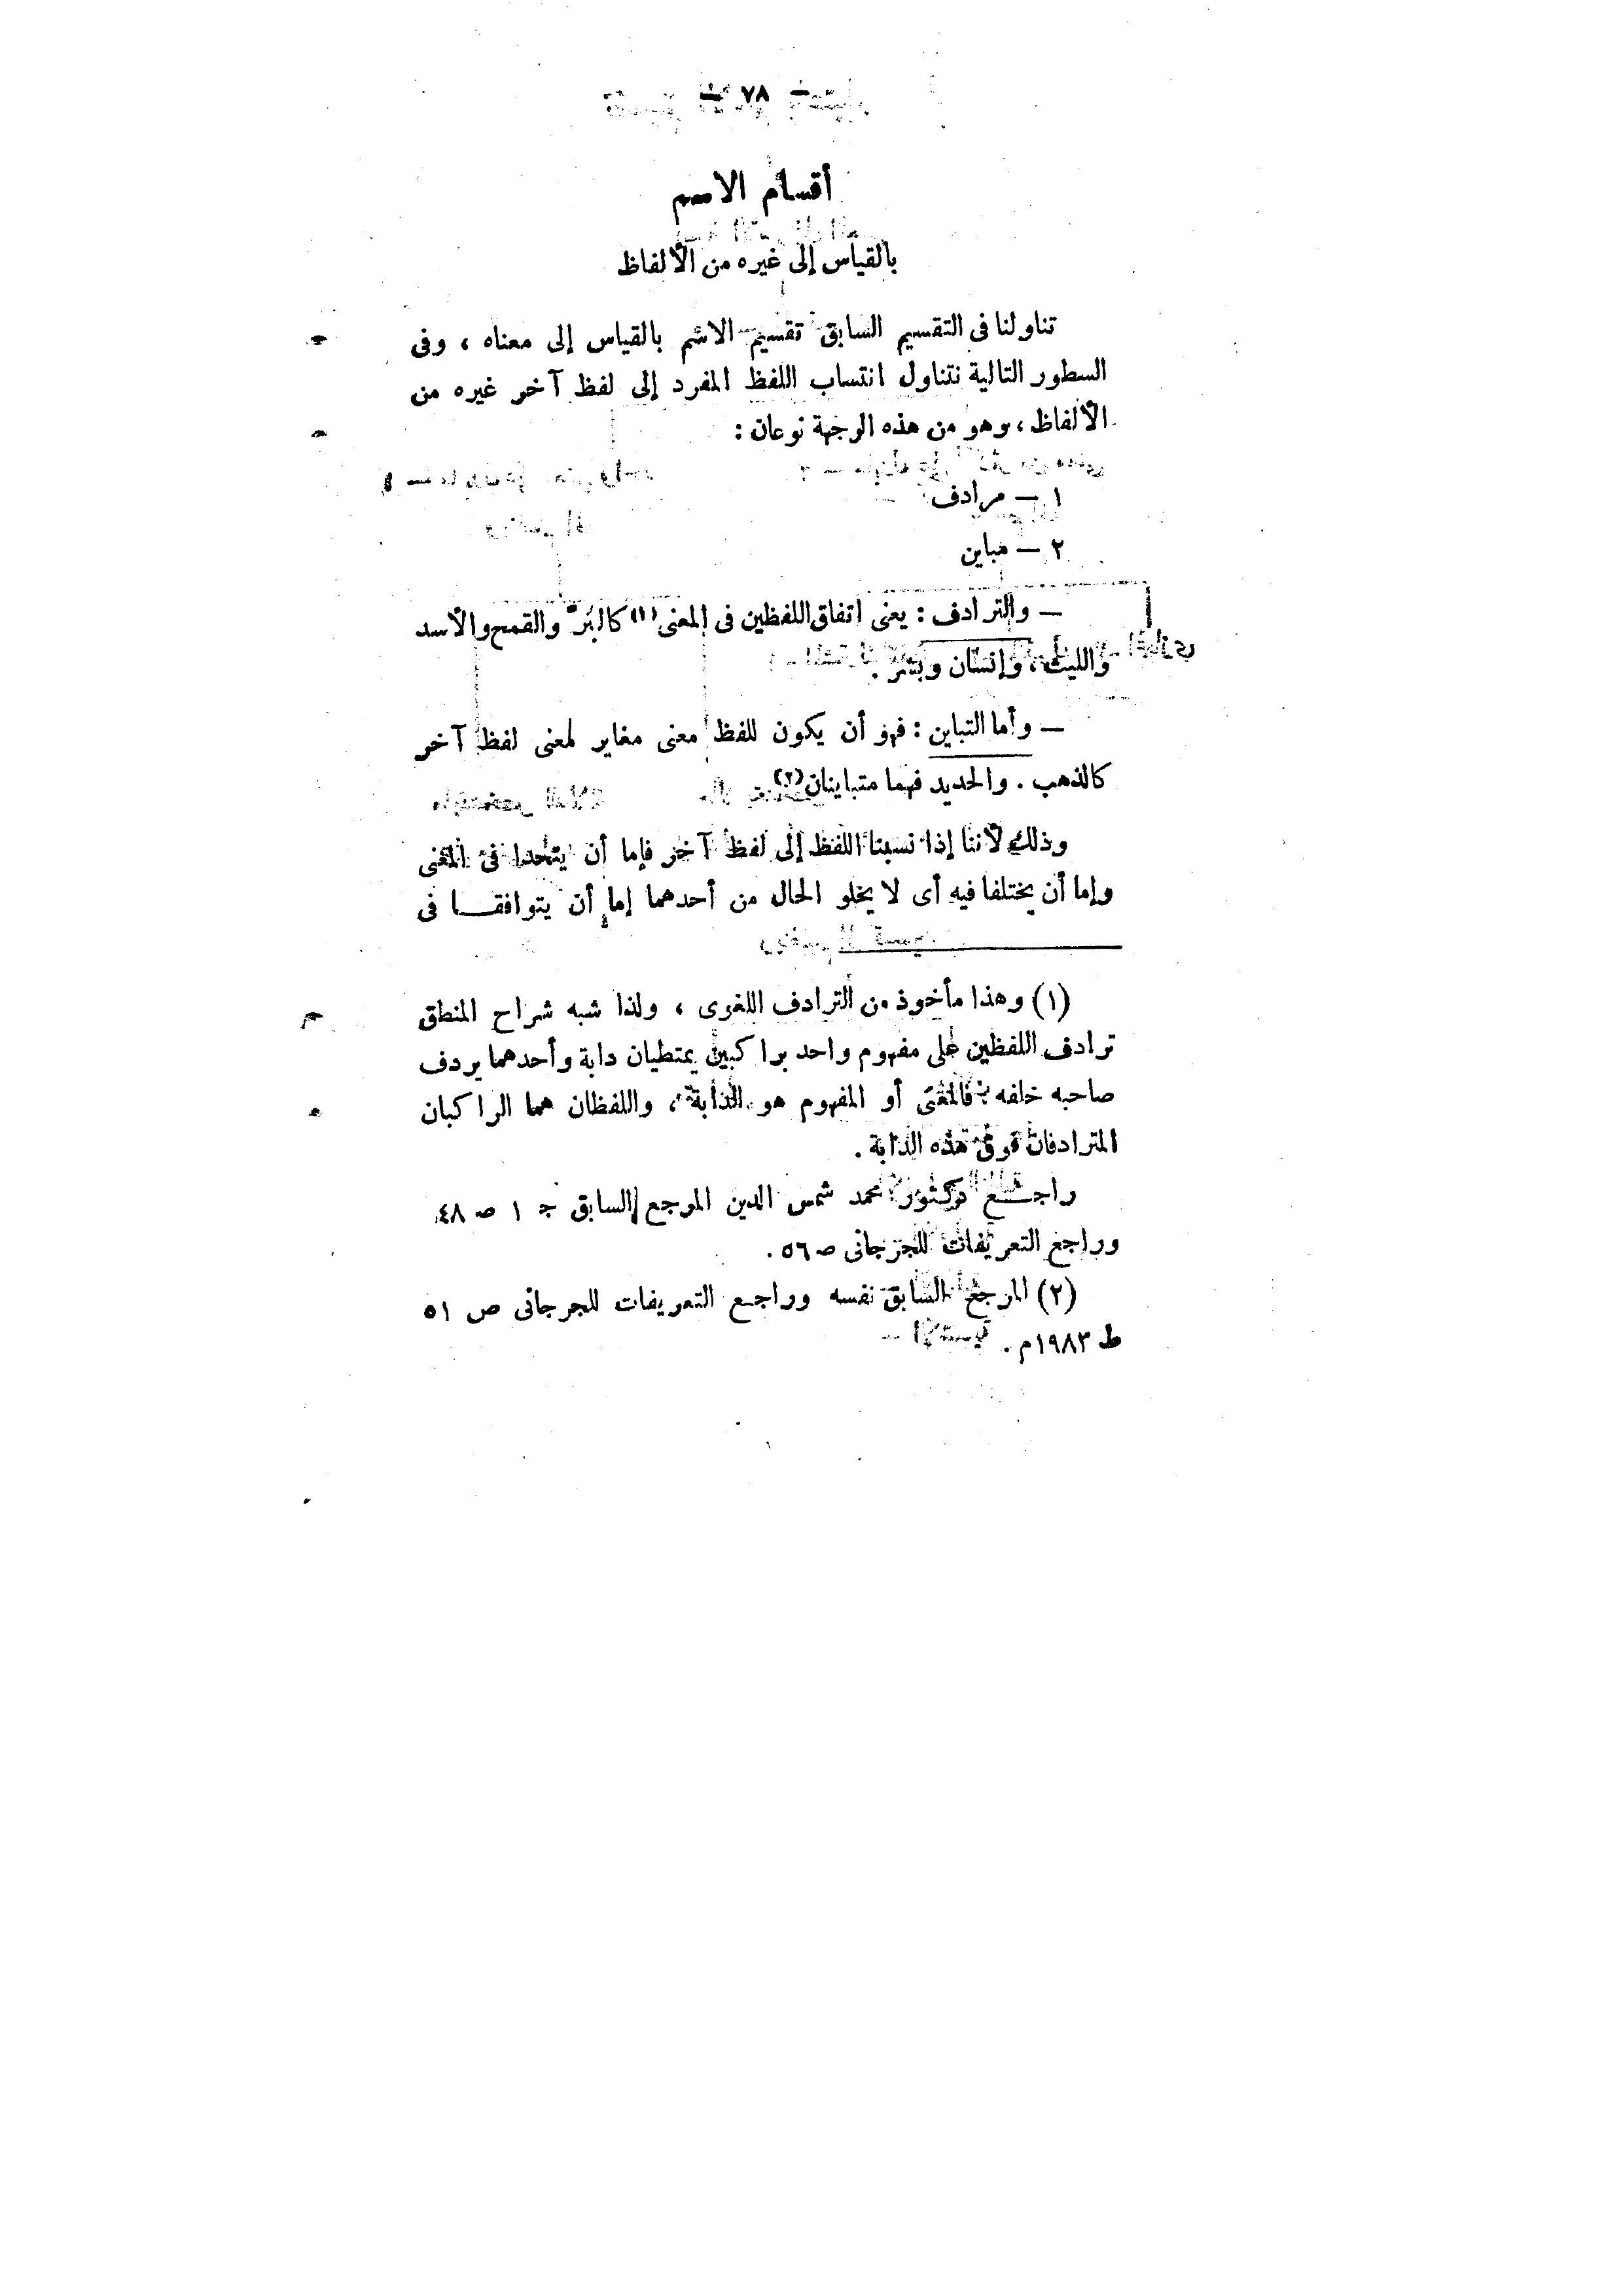 — ٧٨ —
أقسام الاسم
بالقياس إلى غيره من الألفاظ
تناولنا فى التقسيم السابق تقسيم الاسم بالقياس إلى معناه ، وفى
السطور التالية نتناول انتساب اللفظ المفرد إلى لفظ آخر غيره من
الألفاظ ، وهو من هذه الوجهة نوعان :
١ — مرادف
٢ — مباين
— والترادف : يعنى اتفاق اللفظين فى المعنى (١) كالبُرّ والقمح والأسد
والليث ، وإنسان وبشر .
— وأما التباين : فهو أن يكون للفظ معنى مغاير لمعنى لفظ آخر
كالذهب . والحديد فهما متباينان (٢)
وذلك لأننا إذا نسبنا اللفظ إلى لفظ آخر فإما أن يتحدا فى المعنى
وإما أن يختلفا فيه أى لا يخلو الحال من أحدهما إما أن يتوافقـــا فى
(١) وهذا مأخوذ من الترادف اللغوى ، ولذا شبه شراح المنطق
ترادف اللفظين على مفهوم واحد براكبين يمتطيان دابة وأحدهما يردف
صاحبه خلفه : فالمعنى أو المفهوم هو الدابة ، واللفظان هما الراكبان
المترادفان فوق هذه الدابة .
راجـــع دكتور محمد شمس الدين المرجع السابق جـ ١ صـ ٤٨
وراجع التعريفات للجرجانى صـ ٥٦ .
(٢) المرجع السابق نفسه وراجـع التعريفات للجرجانى ص ٥١
ط ١٩٨٣م .